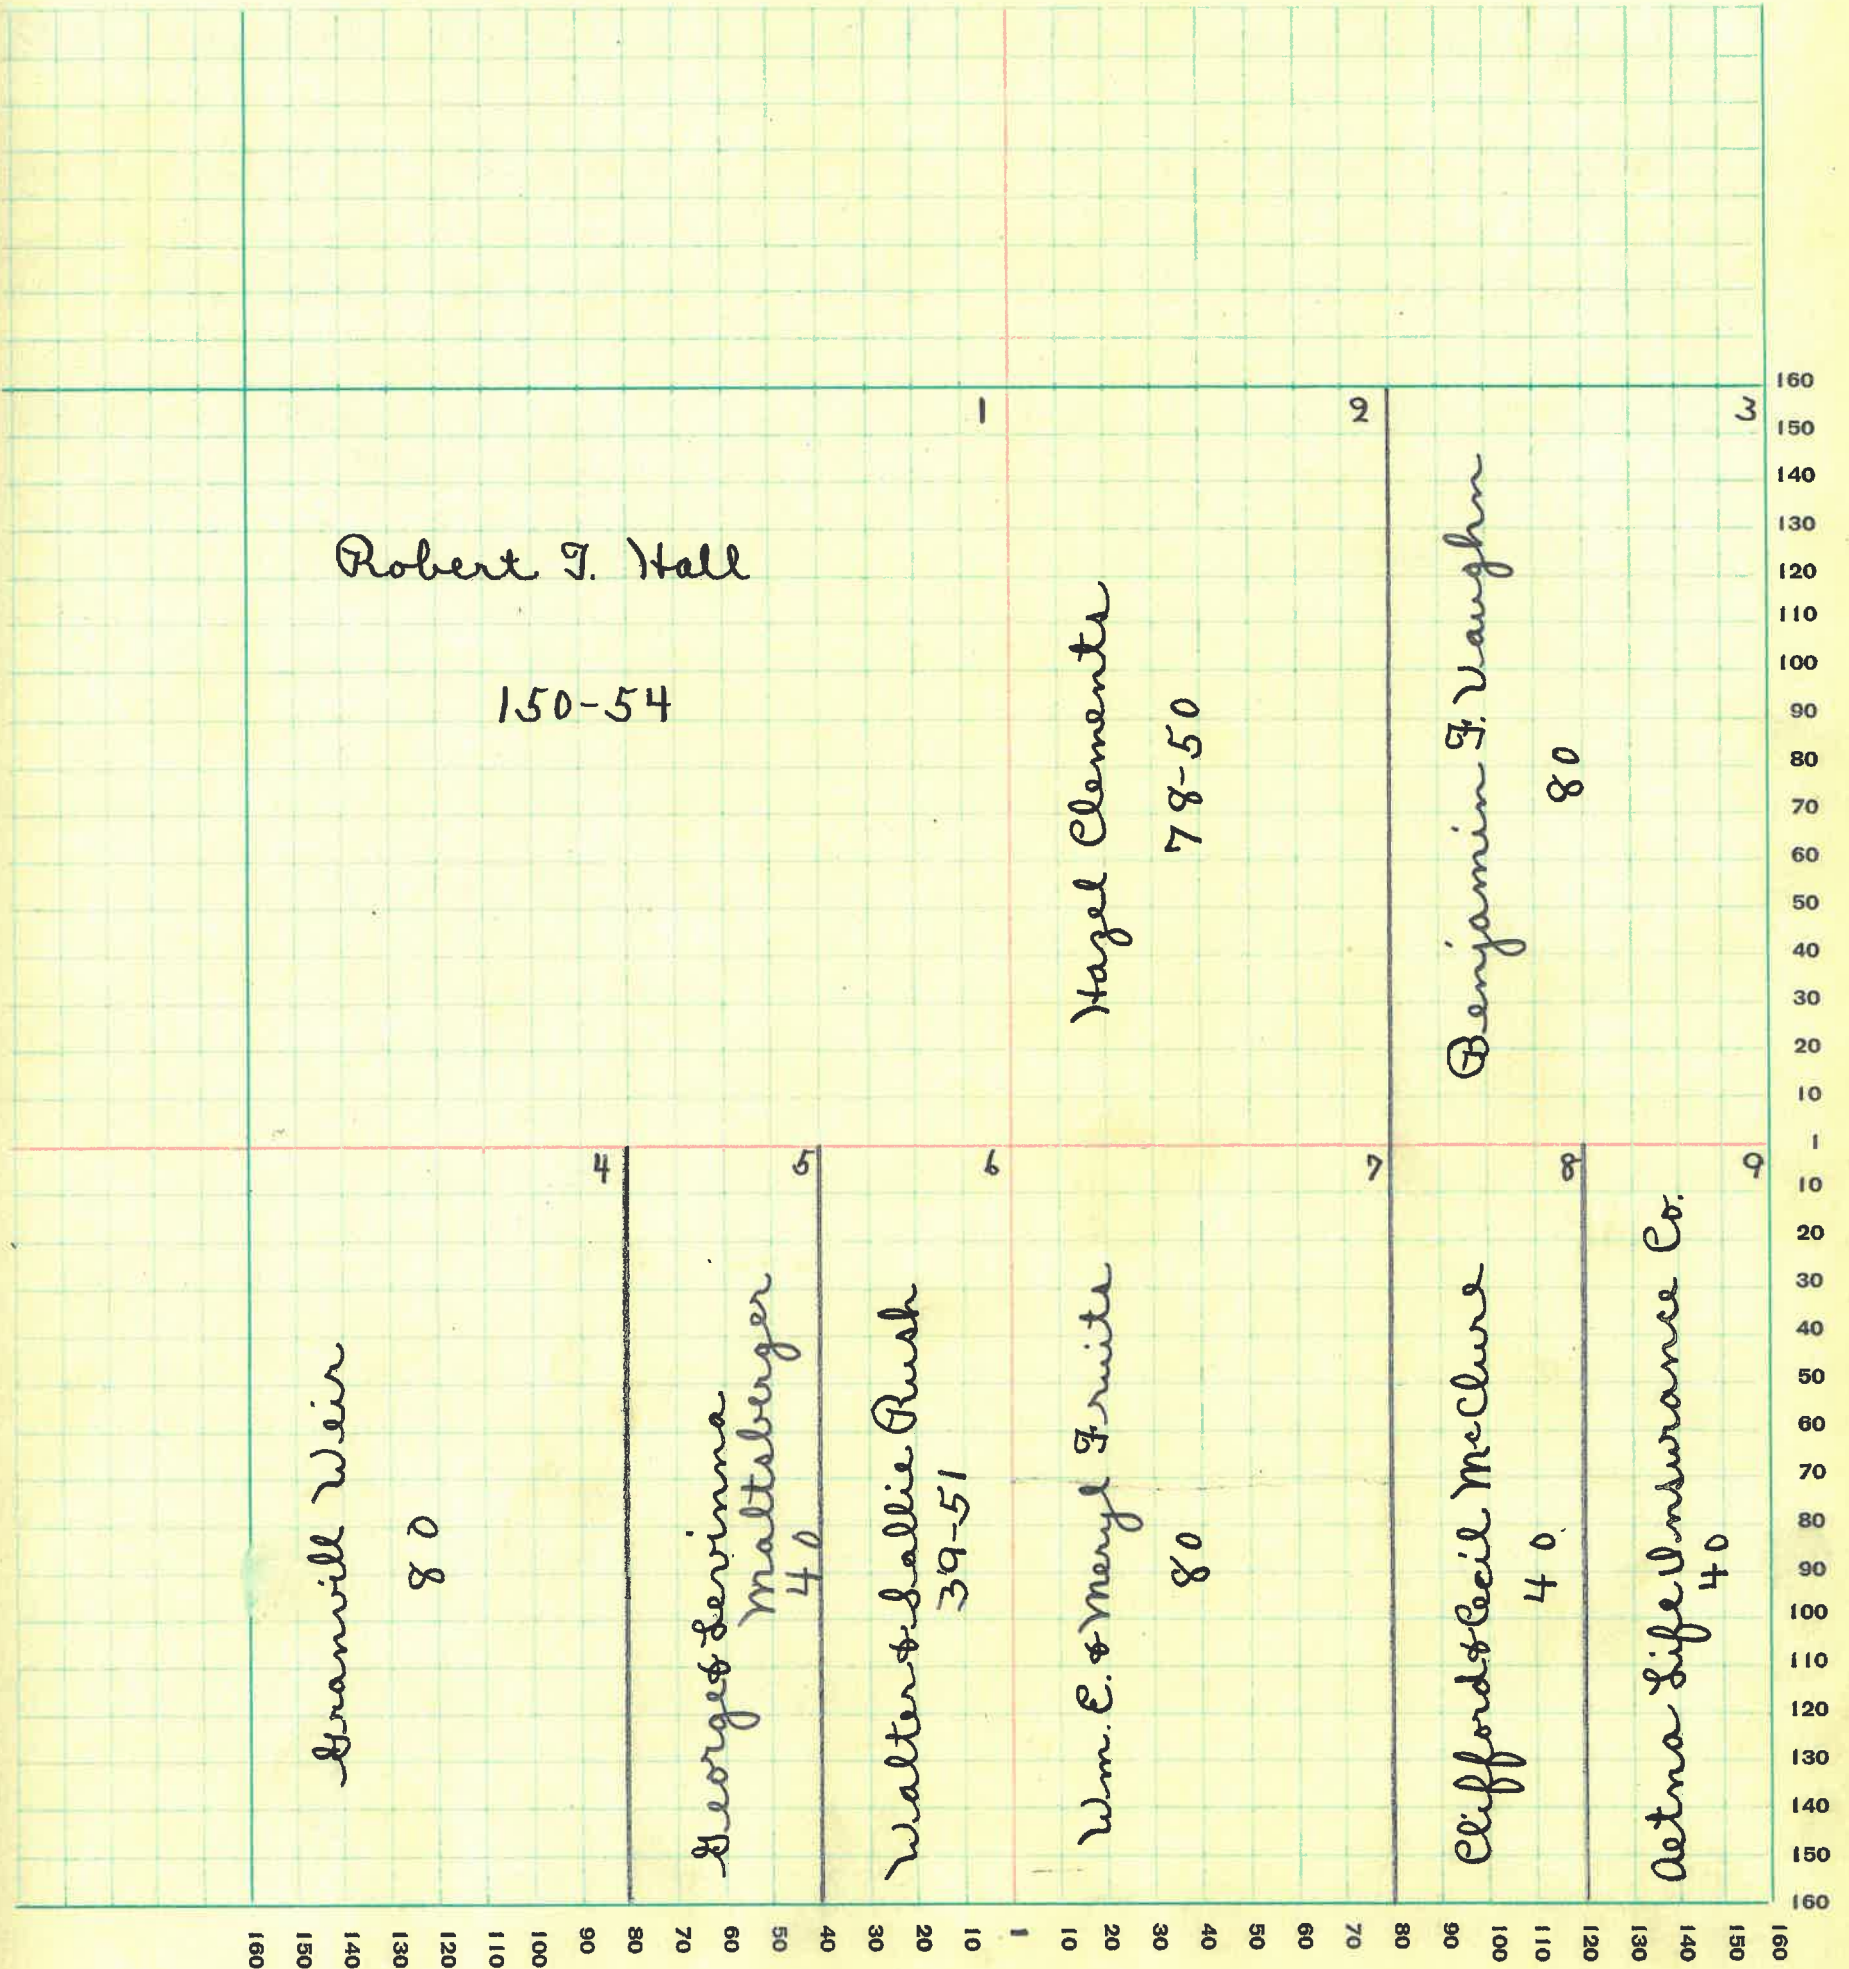 1
2
3
Robert F. Hall
150-54
Hazel Clements
78-50
Benjamin F. Vaughn
80
4
5
6
7
8
9
Granvill Weir
80
George & Levinna
Maltsberger
40
Walter & Sallie Rush
39-51
Wm. E. & Meryl Fruits
80
Clifford & Cecil McClure
40
Aetna Life Insurance Co.
40
160
150
140
130
120
110
100
90
80
70
60
50
40
30
20
10
1
10
20
30
40
50
60
70
80
90
100
110
120
130
140
150
160
160 150 140 130 120 110 100 90 80 70 60 50 40 30 20 10 1 10 20 30 40 50 60 70 80 90 100 110 120 130 140 150 160